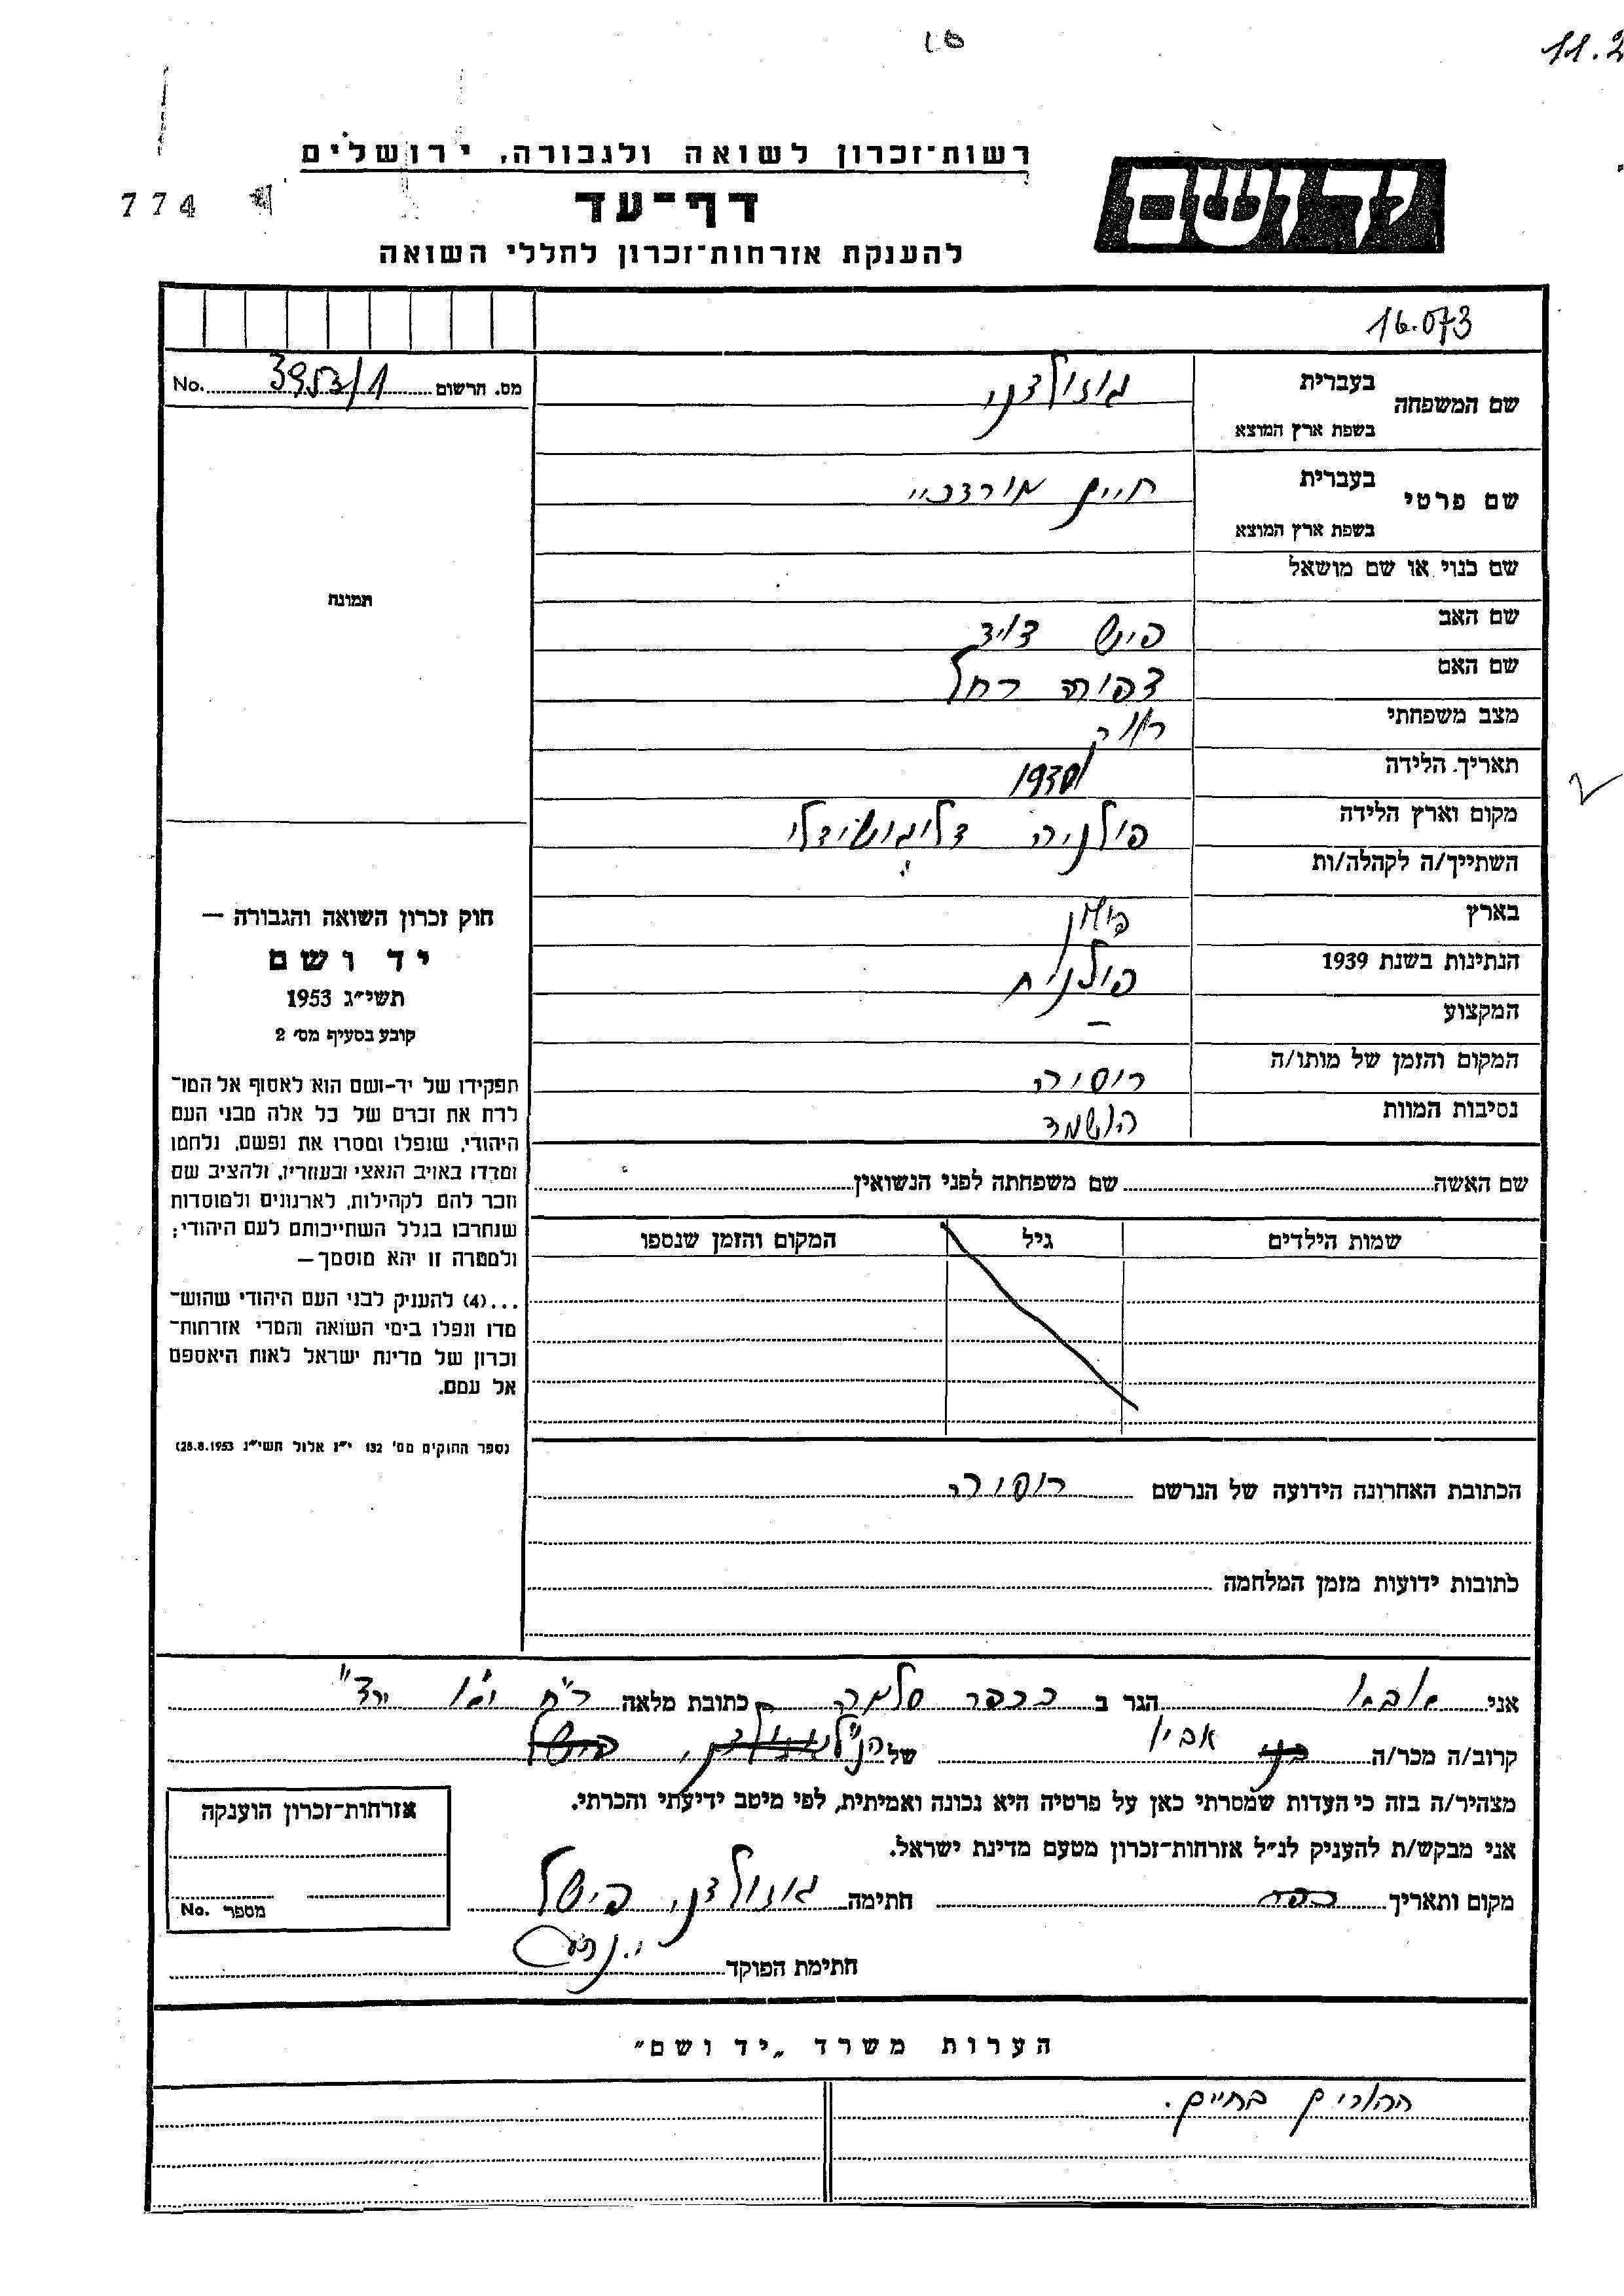 10
11.2
רשות־זכרון לשואה ולגבורה, ירושלים
יד ושם
774
דף־עד
להענקת אזרחות־זכרון לחללי השואה
16.073
מס. הרשום No. 3953/1
שם המשפחה
בעברית גוזולדני
בשפת ארץ המוצא
שם פרטי
בעברית חיים מורדכיי
בשפת ארץ המוצא
שם כנוי או שם מושאל
תמונה
שם האב פיש דויד
שם האם צפורה רחל
מצב משפחתי רווק
תאריך הלידה
מקום וארץ הלידה פולניה
השתייך/ה לקהלה/ות
בארץ
הנתינות בשנת 1939 פולנית
המקצוע –
המקום והזמן של מותו/ה רוסיה
נסיבות המוות הושמד
חוק זכרון השואה והגבורה —
יד ושם
תשי״ג 1953
קובע בסעיף מס׳ 2
תפקידו של יד-ושם הוא לאסוף אל המו־
לדת את זכרם של כל אלה מבני העם
היהודי, שנפלו ומסרו את נפשם, נלחמו
ומרדו באויב הנאצי ובעוזריו, ולהציב שם
וזכר להם לקהילות, לארגונים ולמוסדות
שנחרבו בגלל השתייכותם לעם היהודי;
ולמטרה זו יהא מוסמך —
...(4) להעניק לבני העם היהודי שהוש־
מדו ונפלו בימי השואה והמרי אזרחות־
זכרון של מדינת ישראל לאות היאספם
אל עמם.
(ספר החוקים מס׳ 132 י״ז אלול תשי״ג 28.8.1953)
שם האשה שם משפחתה לפני הנשואין
שמות הילדים גיל המקום והזמן שנספו
הכתובת האחרונה הידועה של הנרשם רוסיה
כתובות ידועות מזמן המלחמה
אני הגר ב בכפר סלמה כתובת מלאה
קרוב/ה מכר/ה אביו של הנ״ל
מצהיר/ה בזה כי העדות שמסרתי כאן על פרטיה היא נכונה ואמיתית, לפי מיטב ידיעתי והכרתי.
אני מבקש/ת להעניק לנ״ל אזרחות־זכרון מטעם מדינת ישראל.
מקום ותאריך חתימה גוזולדני פישל
חתימת הפוקד
אזרחות־זכרון הוענקה
מספר No.
הערות משרד „יד ושם״
ההורים בחיים.